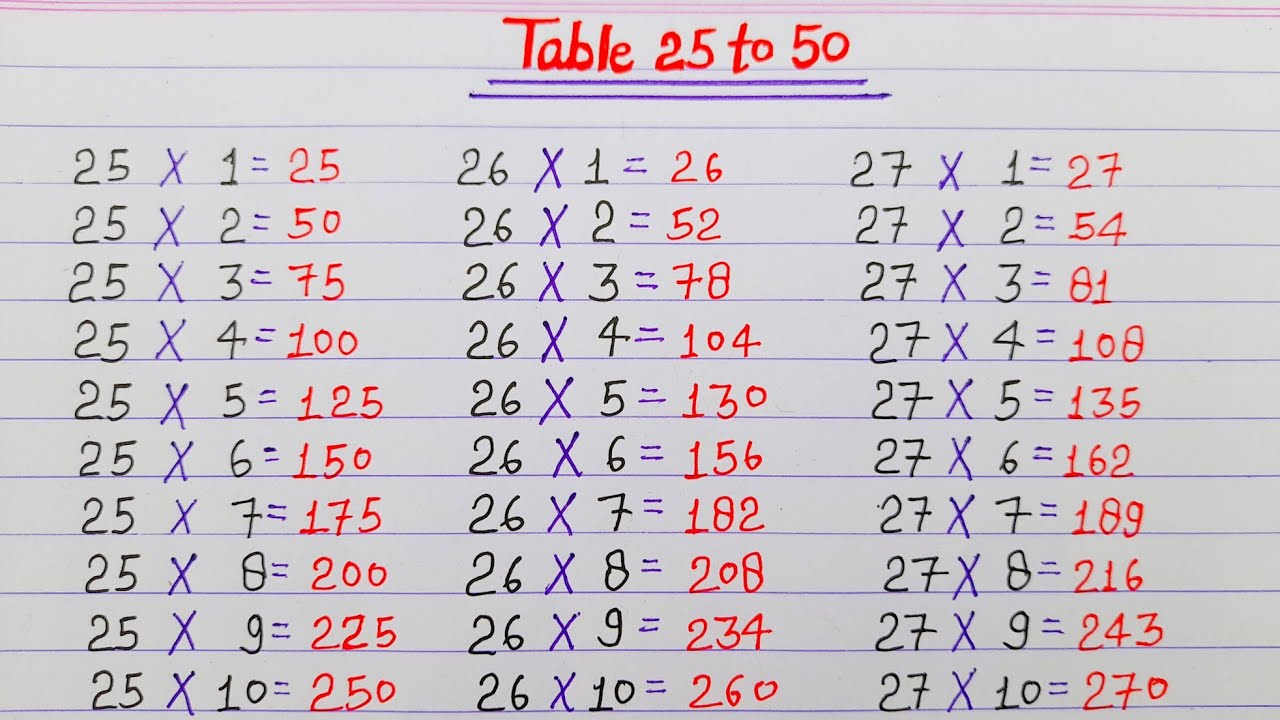 Table 25 to 50
25 X 1 = 25 26 X 1 = 26 27 X 1 = 27
25 X 2 = 50 26 X 2 = 52 27 X 2 = 54
25 X 3 = 75 26 X 3 = 78 27 X 3 = 81
25 X 4 = 100 26 X 4 = 104 27 X 4 = 108
25 X 5 = 125 26 X 5 = 130 27 X 5 = 135
25 X 6 = 150 26 X 6 = 156 27 X 6 = 162
25 X 7 = 175 26 X 7 = 182 27 X 7 = 189
25 X 8 = 200 26 X 8 = 208 27 X 8 = 216
25 X 9 = 225 26 X 9 = 234 27 X 9 = 243
25 X 10 = 250 26 X 10 = 260 27 X 10 = 270